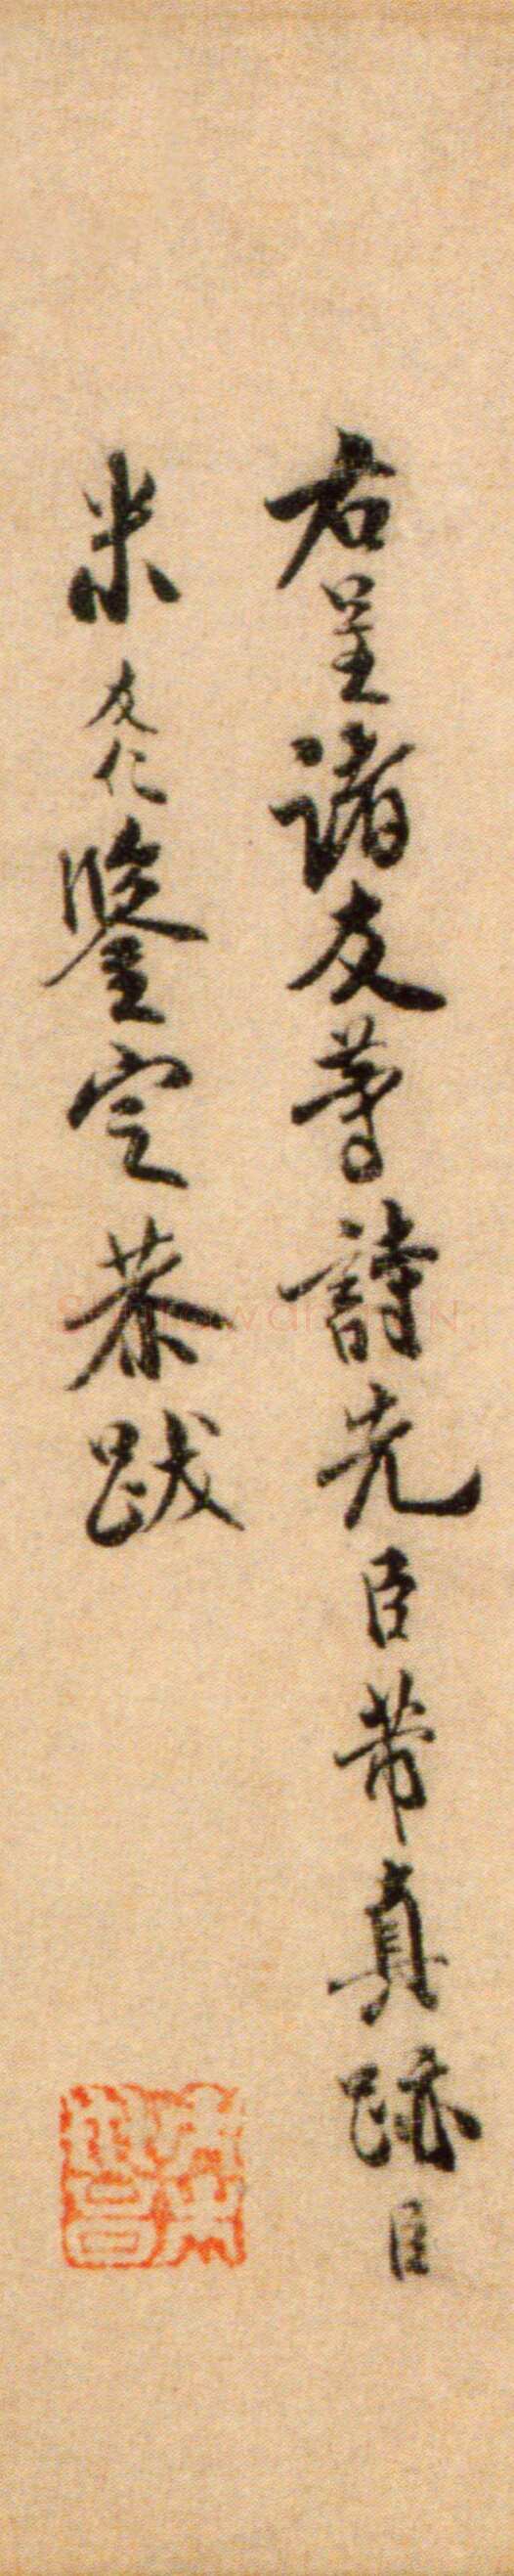 右呈諸友等詩先臣芾真跡臣
米友仁鑒定恭跋